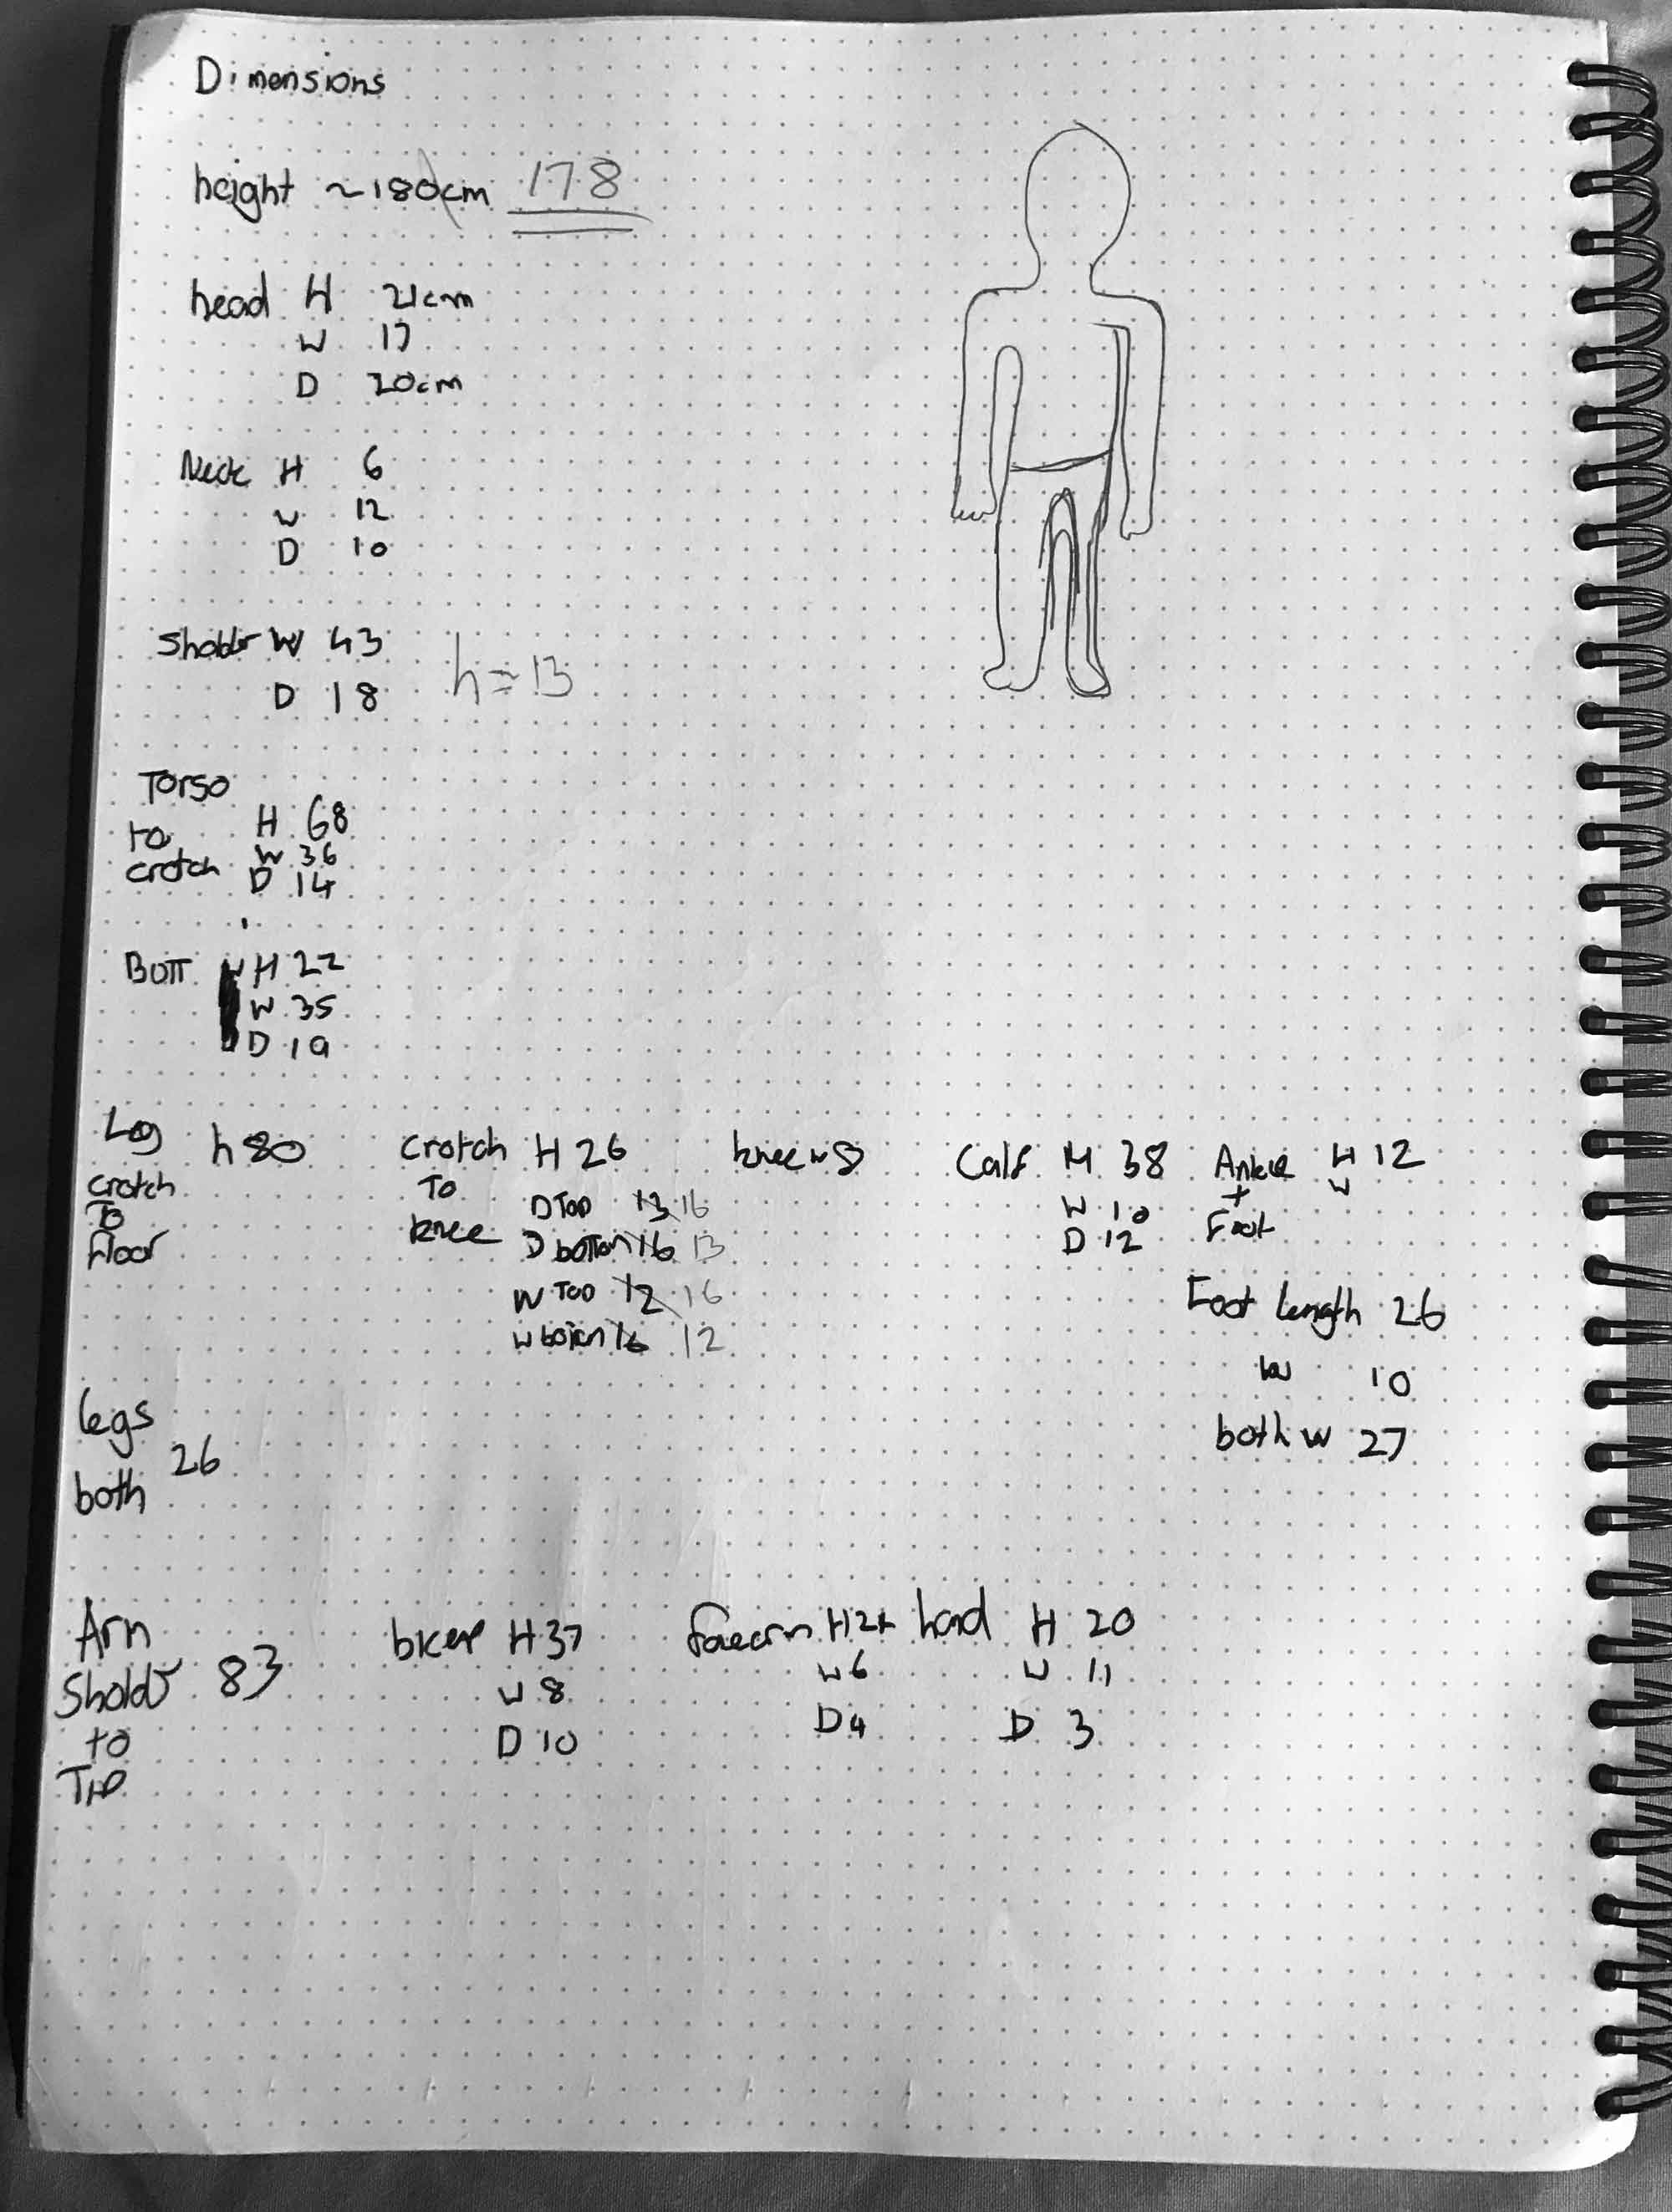 Dimensions
height ~180cm 178
head H 21cm
W 17
D 20cm
Neck H 6
W 12
D 10
Sholdr W 43
D 18 h=13
Torso
to H 68
crotch W 36
D 14
Butt H 22
W 35
D 19
Leg h80
crotch
To
Floor
crotch H 26
To D Top 13 16
knee D bottom 16 13
W Top 12 16
W bottom 16 12
knee 8
Calf H 38
W 10
D 12
Ankle H 12
+ W
Foot
Foot Length 26
W 10
both W 27
legs
both 26
Arm
Sholdr 83
to
Tip
bicep H 37
W 8
D 10
forearm H
W 6
D 4
hand H 20
W 11
D 3